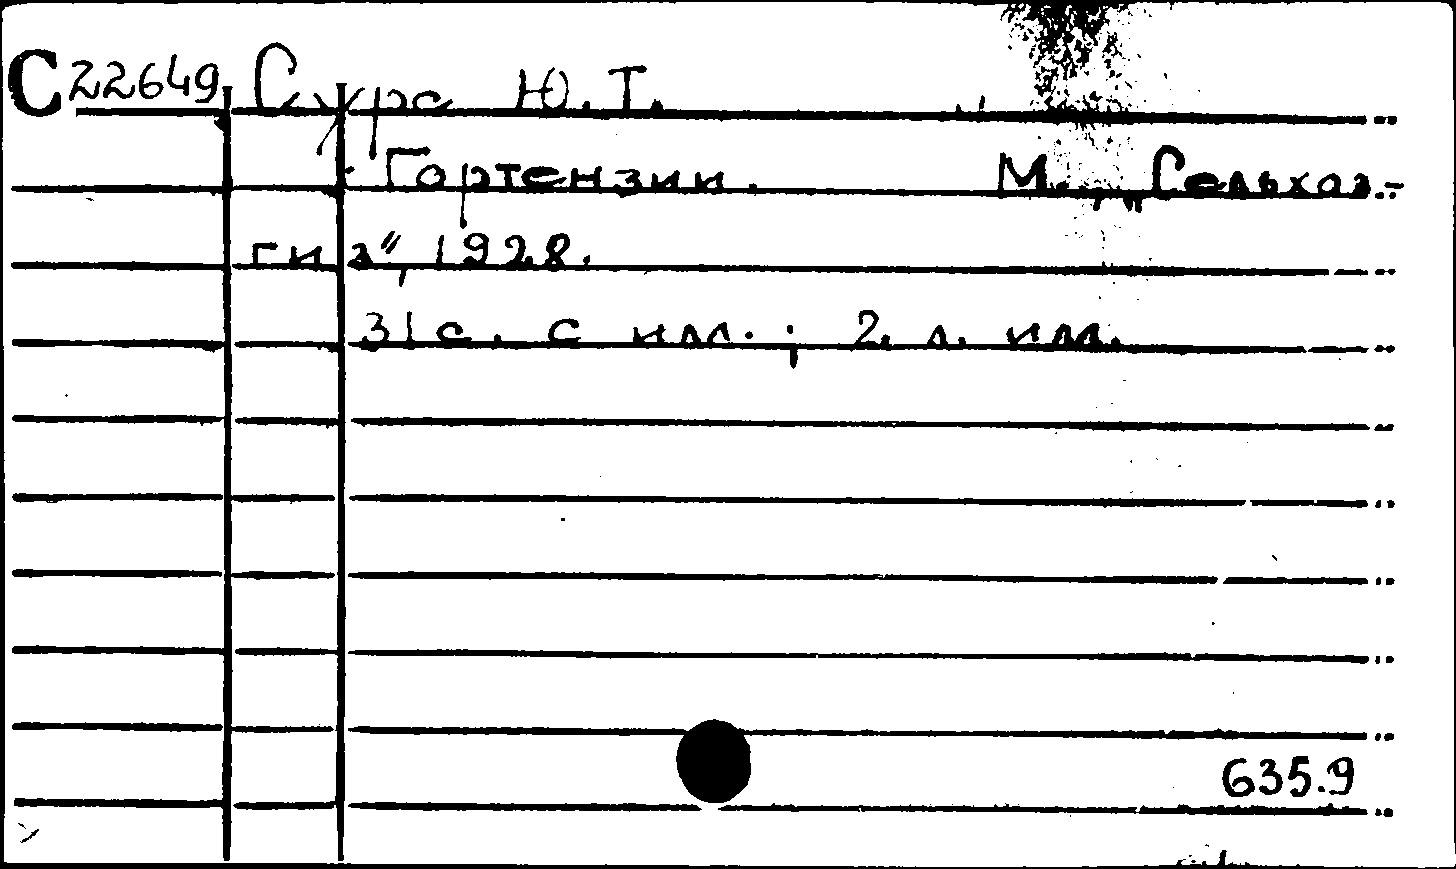 С22649 Сура Ю.Т.
Гортензии. М., „Сельхоз-
гиз“, 1928.
31 с. с илл.; 2 л. илл.
635.9